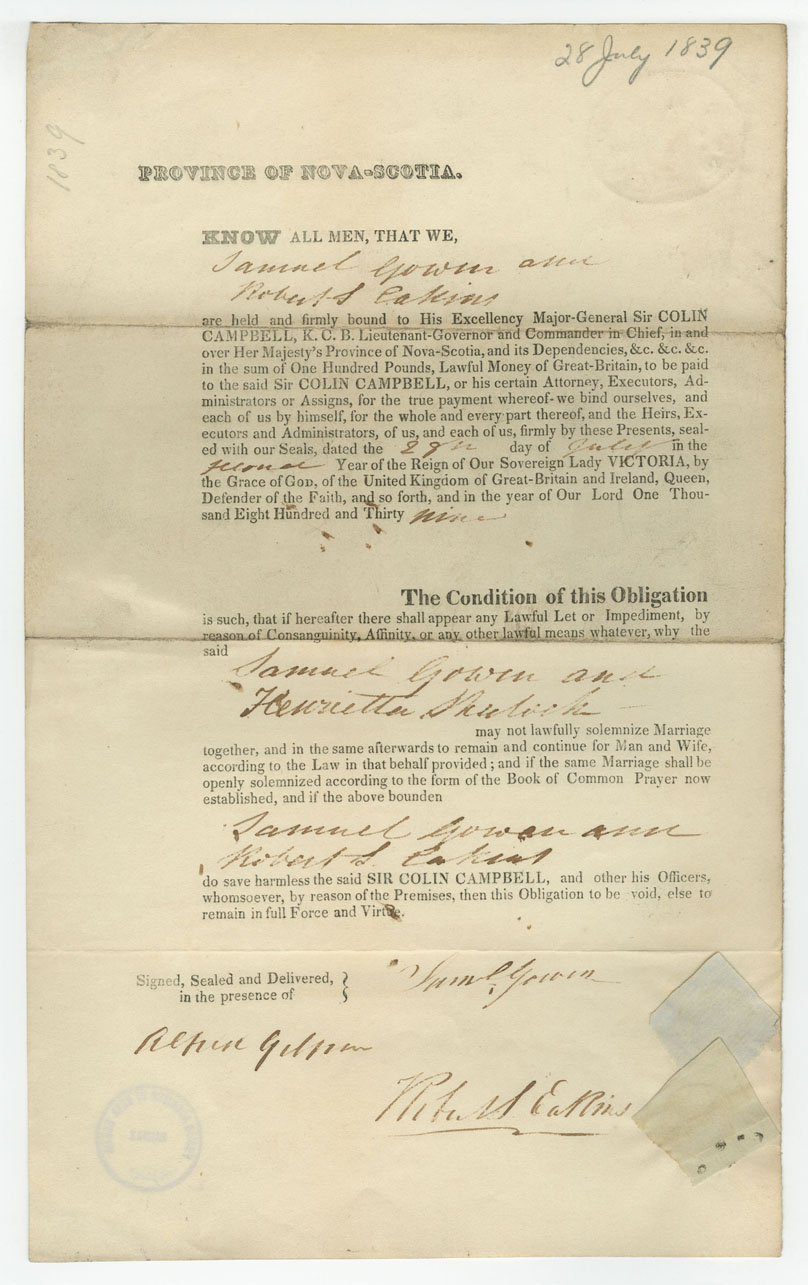 28 July 1839
1839
PROVINCE OF NOVA-SCOTIA.
KNOW ALL MEN, THAT WE,
Samuel Gowen and
Robert S Eakins
are held and firmly bound to His Excellency Major-General Sir COLIN
CAMPBELL, K. C. B. Lieutenant-Governor and Commander in Chief, in and
over Her Majesty's Province of Nova-Scotia, and its Dependencies, &c. &c. &c.
in the sum of One Hundred Pounds, Lawful Money of Great-Britain, to be paid
to the said Sir COLIN CAMPBELL, or his certain Attorney, Executors, Ad-
ministrators or Assigns, for the true payment whereof we bind ourselves, and
each of us by himself, for the whole and every part thereof, and the Heirs, Ex-
ecutors and Administrators, of us, and each of us, firmly by these Presents, seal-
ed with our Seals, dated the day of July in the
second Year of the Reign of Our Sovereign Lady VICTORIA, by
the Grace of GOD, of the United Kingdom of Great-Britain and Ireland, Queen,
Defender of the Faith, and so forth, and in the year of Our Lord One Thou-
sand Eight Hundred and Thirty nine
The Condition of this Obligation
is such, that if hereafter there shall appear any Lawful Let or Impediment, by
reason of Consanguinity, Affinity, or any other lawful means whatever, why the
said
Samuel Gowen and
Henrietta
may not lawfully solemnize Marriage
together, and in the same afterwards to remain and continue for Man and Wife,
according to the Law in that behalf provided; and if the same Marriage shall be
openly solemnized according to the form of the Book of Common Prayer now
established, and if the above bounden
Samuel Gowen and
Robert S. Eakins
do save harmless the said SIR COLIN CAMPBELL, and other his Officers,
whomsoever, by reason of the Premises, then this Obligation to be void, else to
remain in full Force and Virtue.
Signed, Sealed and Delivered,
in the presence of
Saml. Gowen
Alfred Gilpin
Robert S Eakins